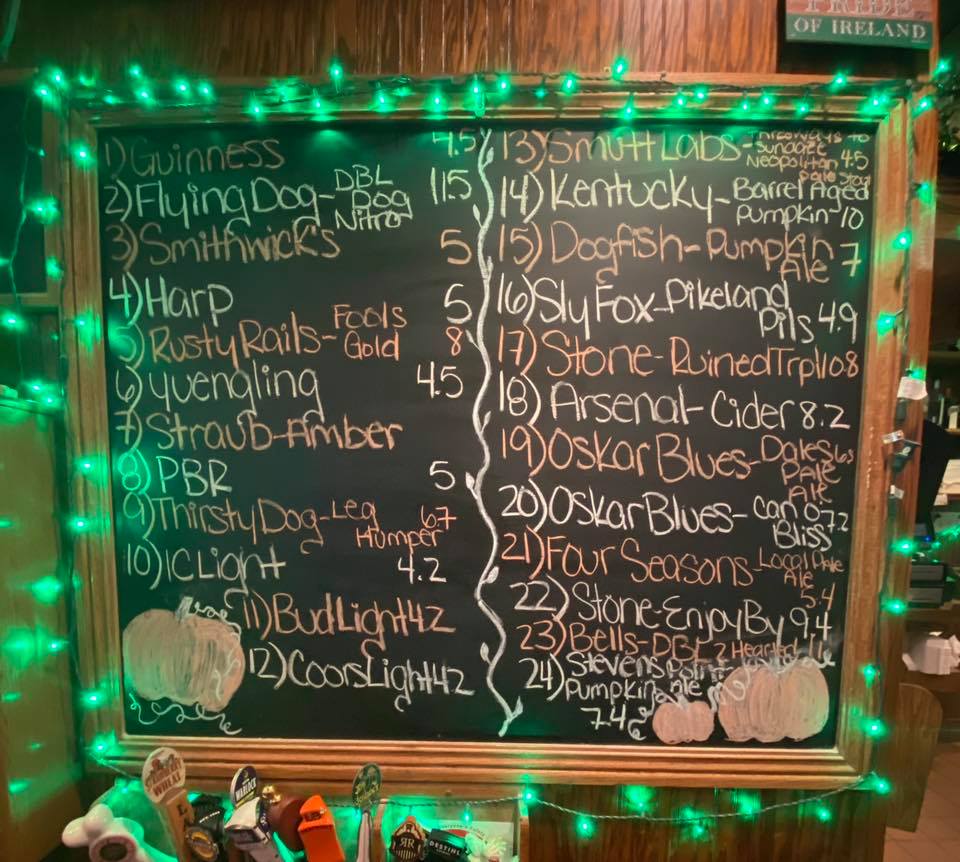 PRIDE
OF IRELAND
1) Guinness 4.5
2) Flying Dog- DBL Dog Nitro 11.5
3) Smithwick's 5
4) Harp 5
5) Rusty Rails- Fools Gold 8
6) yuengling 4.5
7) Straub-Amber
8) PBR 5
9) Thirsty Dog-Leg Humper 6.7
10) IC Light 4.2
11) Bud Light 4.2
12) Coors Light 4.2
13) Smutt Labs- Throways to Sundaze Neopolitan 4.5
14) Kentucky- Barrel Aged pumpkin 10
15) Dogfish- Pumpkin Ale 7
16) Sly Fox- Pikeland Pils 4.9
17) Stone- Ruined Trpl 10.8
18) Arsenal- Cider 8.2
19) Oskar Blues- Dales Pale Ale
20) Oskar Blues- Can O Bliss 7.2
21) Four Seasons- Local Pale Ale 5.4
22) Stone-Enjoy By 9.4
23) Bells-DBL 2 Hearted 11
24) Stevens Point Pumpkin Ale
7.4
WHEAT
WARLOCK
RR
DESTIHL